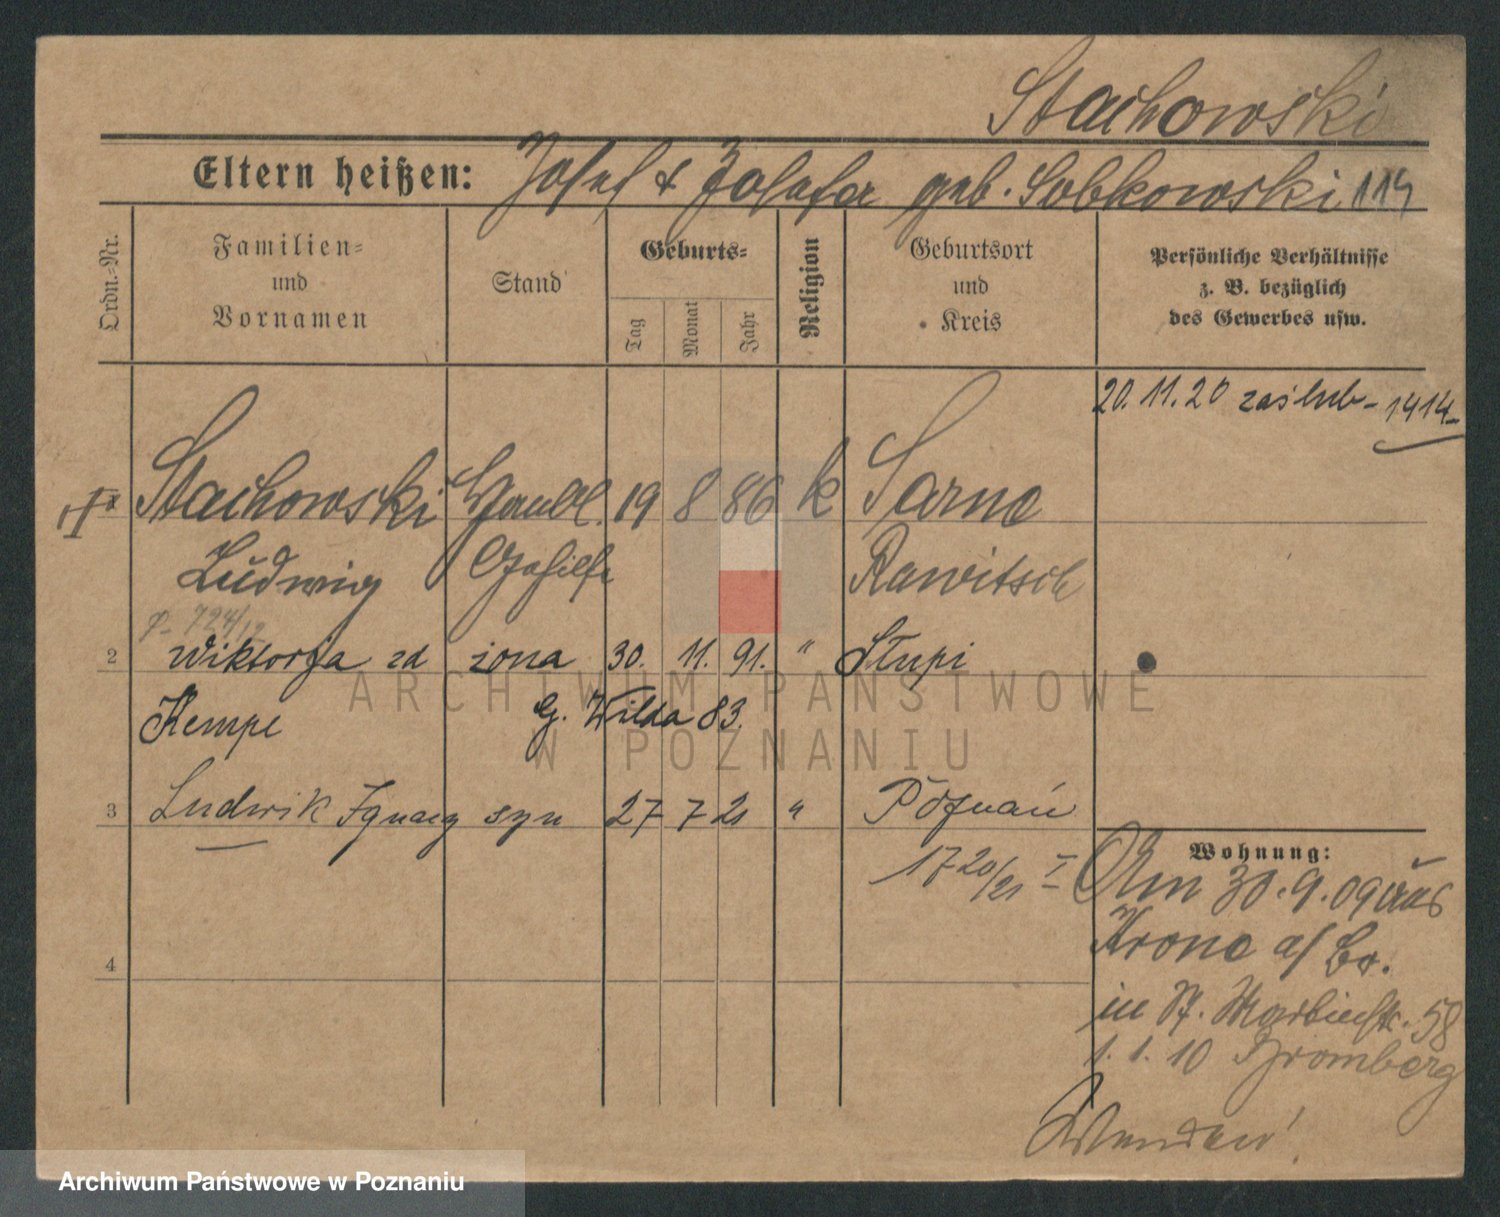 Stachowski
Eltern heißen: Josef & Josefa geb. Sobkowski 114
Ordn.=Nr.
Familien= und Vornamen
Stand
Geburts=
Tag
Monat
Jahr
Religion
Geburtsort und Kreis
Persönliche Verhältnisse
z. B. bezüglich
des Gewerbes usw.
20.11.20 zaślub - 1414 -
Stachowski Handl. 19 8 86 k Sarne
Ludwig Gehilfe Rawitsch
P. 724/12
2 Wiktorja zd żona 30. 11. 91. " Słupi
Kempe G. Wilda 83.
3 Ludwik Ignacy syn 27 7 21 " Poznań
1720/21 I
4
Wohnung:
Am 30.9.09 aus
Krone a/ Br.
in St. Martinstr. 58
1.1.10 Bromberg
Wenden!
ARCHIWUM PAŃSTWOWE
W POZNANIU
Archiwum Państwowe w Poznaniu